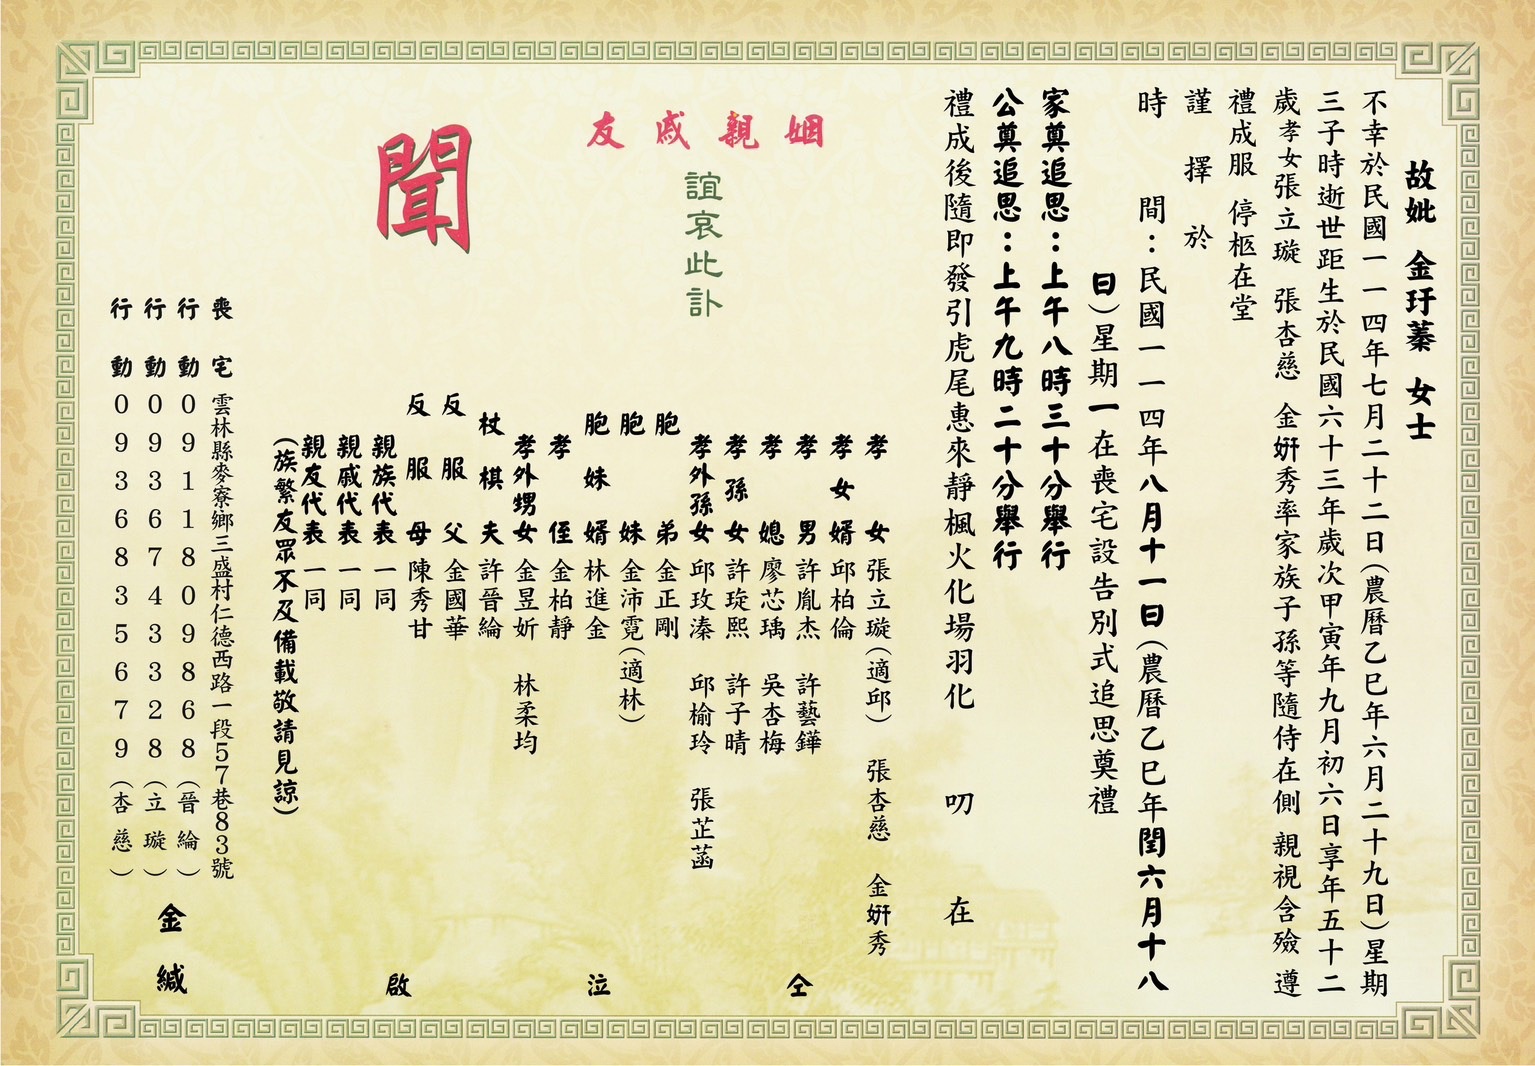 故妣 金玗蓁 女士
不幸於民國一一四年七月二十二日(農曆乙巳年六月二十九日)星期
三子時逝世距生於民國六十三年歲次甲寅年九月初六日享年五十二
歲孝女張立璇 張杏慈 金姸秀率家族子孫等隨侍在側 親視含殮 遵
禮成服 停柩在堂
謹擇於
時 間：民國一一四年八月十一日(農曆乙巳年閏六月十八
日)星期一在喪宅設告別式追思奠禮
家奠追思：上午八時三十分舉行
公奠追思：上午九時二十分舉行
禮成後隨即發引虎尾惠來靜楓火化場羽化 叨 在
姻親戚友
誼哀此訃
聞
孝女張立璇(適邱) 張杏慈 金姸秀
孝女婿邱柏倫
孝男許胤杰 許藝鏵
孝媳廖芯瑀 吳杏梅
孝孫女許琁熙 許子晴
孝外孫女邱玫溱 邱榆玲 張芷菡
胞弟金正剛
胞妹金沛霓(適林)
胞妹婿林進金
孝侄金柏靜
孝外甥女金昱妡 林柔均
杖棋夫許晉綸
反服父金國華
反服母陳秀甘
親族代表一同
親戚代表一同
親友代表一同
(族繁友眾不及備載敬請見諒)
仝 泣 啟
喪宅 雲林縣麥寮鄉三盛村仁德西路一段57巷83號
行動 0911809868(晉綸)
行動 0936743328(立璇)
行動 0936835679(杏慈)
金 緘